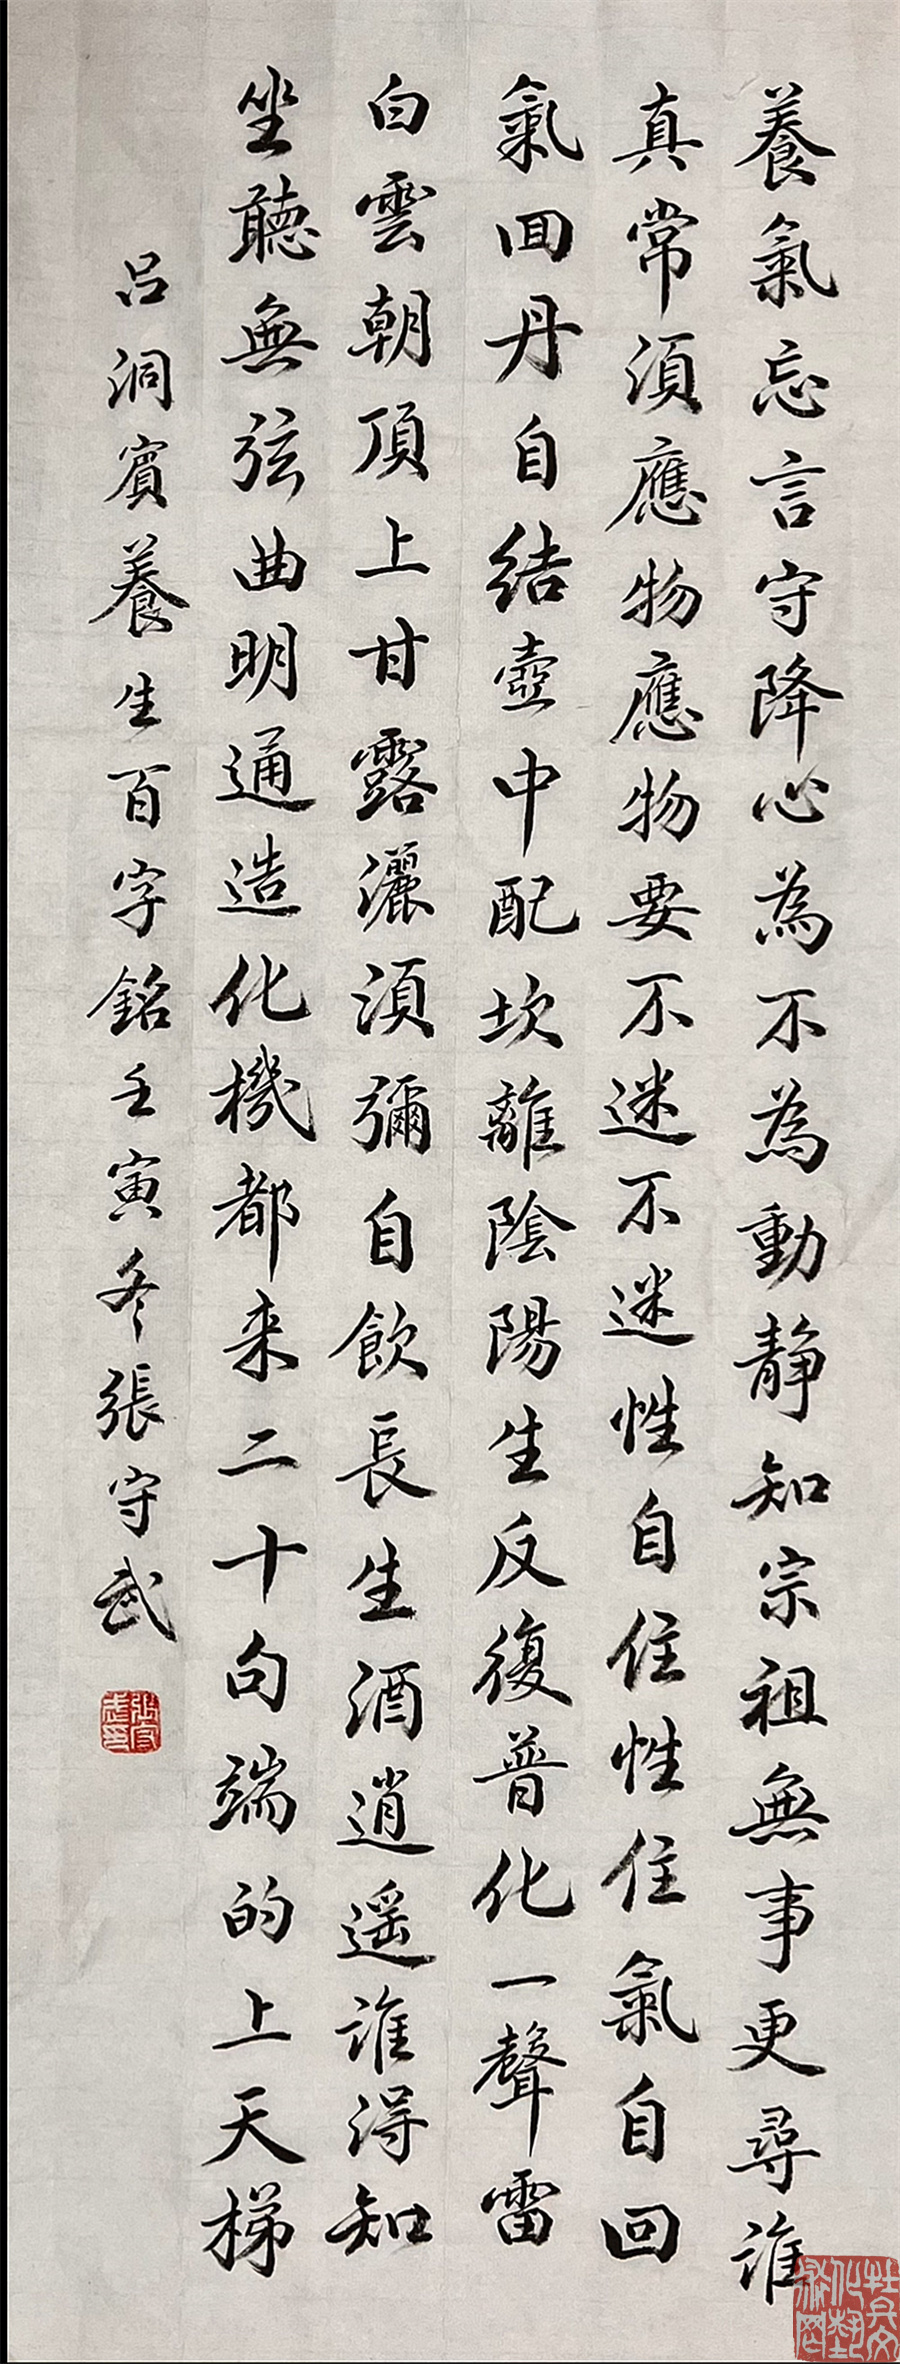 養氣忘言守降心為不為動靜知宗祖無事更尋誰
真常須應物應物要不迷不迷性自住性住氣自回
氣回丹自結壺中配坎離陰陽生反復普化一聲雷
白雲朝頂上甘露灑須彌自飲長生酒逍遥誰得知
坐聽無弦曲明通造化機都来二十句端的上天梯
吕洞賓養生百字銘壬寅冬張守武
張守武印